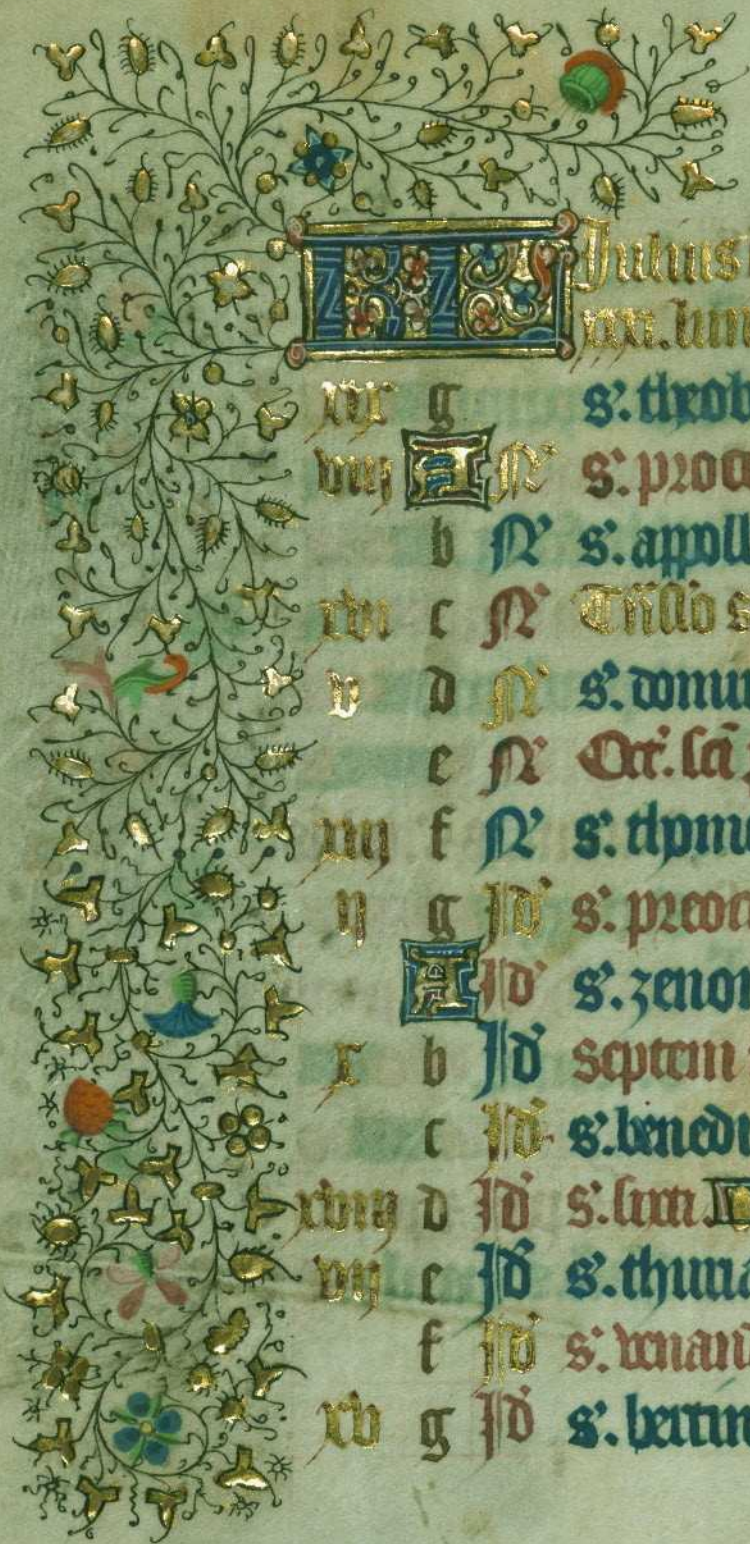 KL Julius
xxxi. lun
xix g s'. theob
viij A N' s'. proce
b N' s'. appoll
xvi c N' Tnslo s
v d N' s'. donun
e N' Oct'. sci
xiij f N' s'. thome
ij g Id' s'. preoce
A Id' s'. zenon
x b Id' Septem
c Id' s'. benedi
xviij d Id' s'. sixti
vij e Id' s'. thuria
f Id' s'. venand
xv g Id' s'. bertin